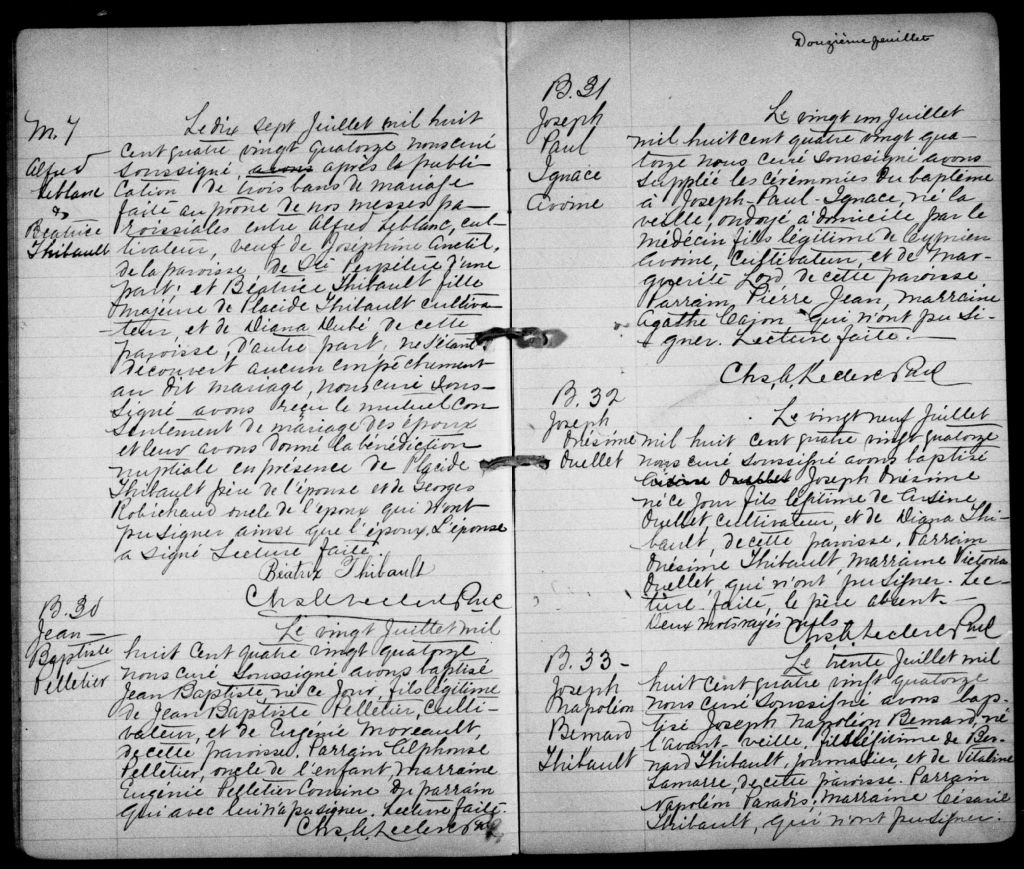 M. 7
Alfred
Leblanc
&
Béatrice
Thibault
Le dix sept Juillet mil huit
cent quatre vingt quatorze nous curé
soussigné, avons après la publi
cation de trois bans de mariage
faite au prône de nos messes pa-
roissiales entre Alfred Leblanc, cul-
tivateur, veuf de Joséphine Anctil,
de la paroisse de Ste Perpétue d'une
part; et Béatrice Thibault fille
majeure de Placide Thibault cultiva-
teur et de Diana Dubé de cette
paroisse, d'autre part; ne s'étant
découvert aucun empêchement
au dit mariage, nous curé sous-
signé avons reçu le mutuel con
sentement de mariage des époux
et leur avons donné la bénédiction
nuptiale en présence de Placide
Thibault père de l'épouse et de Georges
Robichaud oncle de l'époux qui n'ont
pu signer ainsi que l'époux. L'épouse
a signé Lecture faite.
Béatrix Thibault
Chs A. Leclerc Ptre
B. 30
Jean-
Baptiste
Pelletier
Le vingt Juillet mil
huit cent quatre vingt quatorze
nous curé soussigné avons baptisé
Jean Baptiste né ce jour, fils légitime
de Jean Baptiste Pelletier, culti-
vateur, et de Eugénie Moreault,
de cette paroisse. Parrain Alphonse
Pelletier, oncle de l'enfant, marraine
Eugénie Pelletier Cousine du parrain
qui avec lui n'a pu signer. Lecture faite.
Chs A. Leclerc Ptre
Douzième feuillet
B. 31
Joseph
Paul
Ignace
Avoine
Le vingt un Juillet
mil huit cent quatre vingt qua-
torze nous curé soussigné avons
supplée les cérémonies du baptême
à Joseph-Paul-Ignace, né la
veille, ondoyé à domicile par le
médecin fils légitime de Cyprien
Avoine, cultivateur, et de Mar-
guerite Lord de cette paroisse
Parrain Pierre Jean, marraine
Agathe Caron qui n'ont pu si-
gner. Lecture faite.
Chs A. Leclerc Ptre
B. 32
Joseph
Onésime
Ouellet
Le vingt neuf Juillet
mil huit cent quatre vingt quatorze
nous curé soussigné avons baptisé
Ouellet Joseph Onésime
né ce jour fils légitime de Arsène
Ouellet, cultivateur, et de Diana Thi-
bault, de cette paroisse. Parrain
Onésime Thibault, marraine Victoria
Ouellet, qui n'ont pu signer. Lec-
ture faite, le père absent.
Deux mots rayés nuls
Chs A. Leclerc Ptre
B. 33-
Joseph
Napoléon
Bernard
Thibault
Le trente Juillet mil
huit cent quatre vingt quatorze
nous curé soussigné avons bap-
tisé Joseph Napoléon Bernard, né
l'avant-veille, fils légitime de Ber-
nard Thibault, journalier, et de Vitaline
Lamarre, de cette paroisse. Parrain
Napoléon Paradis, marraine Césarie
Thibault, qui n'ont pu signer.